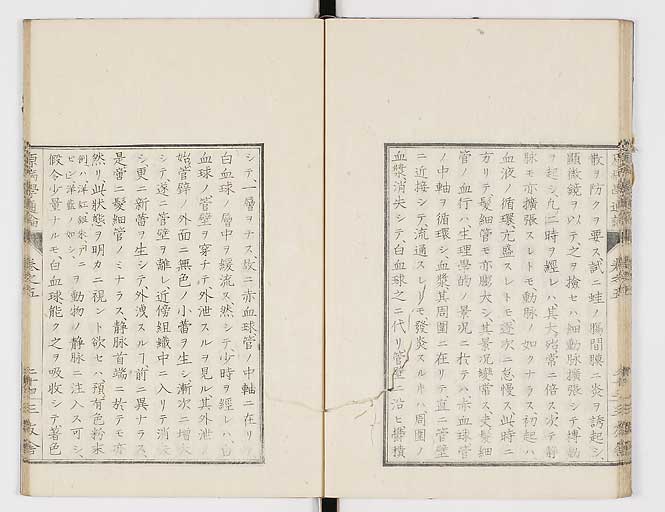 散ヲ防クヲ要ス試ニ蛙ノ腸間膜ニ炎ヲ誘起シ、
顯微鏡ヲ以テ之ヲ檢セハ細動脉擴張シテ搏動
ヲ起シ、凡二時ヲ經レハ其大殆常ニ倍ス次テ靜
脉モ亦擴張スレトモ、動脉ノ如クナラス、初起ハ
血液ノ循環亢盛スレトモ逐次ニ怠慢ス此時ニ
方リテ髮細管モ亦膨大シ、其景況變常ス夫髮細
管ノ血行ハ生理學的ノ景況ニ於テハ赤血球管
ノ中軸ヲ循環シ、血漿其周圍ニ在リテ直ニ管壁
ニ近接シテ流通スレ𪜈發炎スル片ハ周圍ノ
血漿消失シテ、白血球之ニ代リ管壁ニ沿ヒ擠積
シテ、一層ヲナス、故ニ赤血球管ノ中軸ニ在リテ
白血球ノ層中ヲ緩流ス然シテ少時ヲ經レハ、白
血球ノ管壁ヲ穿ナテ外泄スルヲ見ル其外泄ノ
始管壁ノ外面ニ無色ノ小蕾ヲ生シ漸次ニ增大
シテ遂ニ管壁ヲ離レ近傍組織中ニ入リテ消失
シ、更ニ新蕾ヲ生シテ外洩スルヿ前ニ異ナラス、
是啻ニ髮細管ノミナラス靜脉首端ニ於テモ亦
然リ此狀態ヲ明カニ視ント欲セハ預有色粉末
例ハ洋紅銀朱アニ
ヒ子洋藍ノ如シヲ動物ノ靜脉ニ注入ス可シ、
假令少量ナルモ、白血球能ク之ヲ吸收シテ著色
原病學通論
卷之五
二十四
三友舍